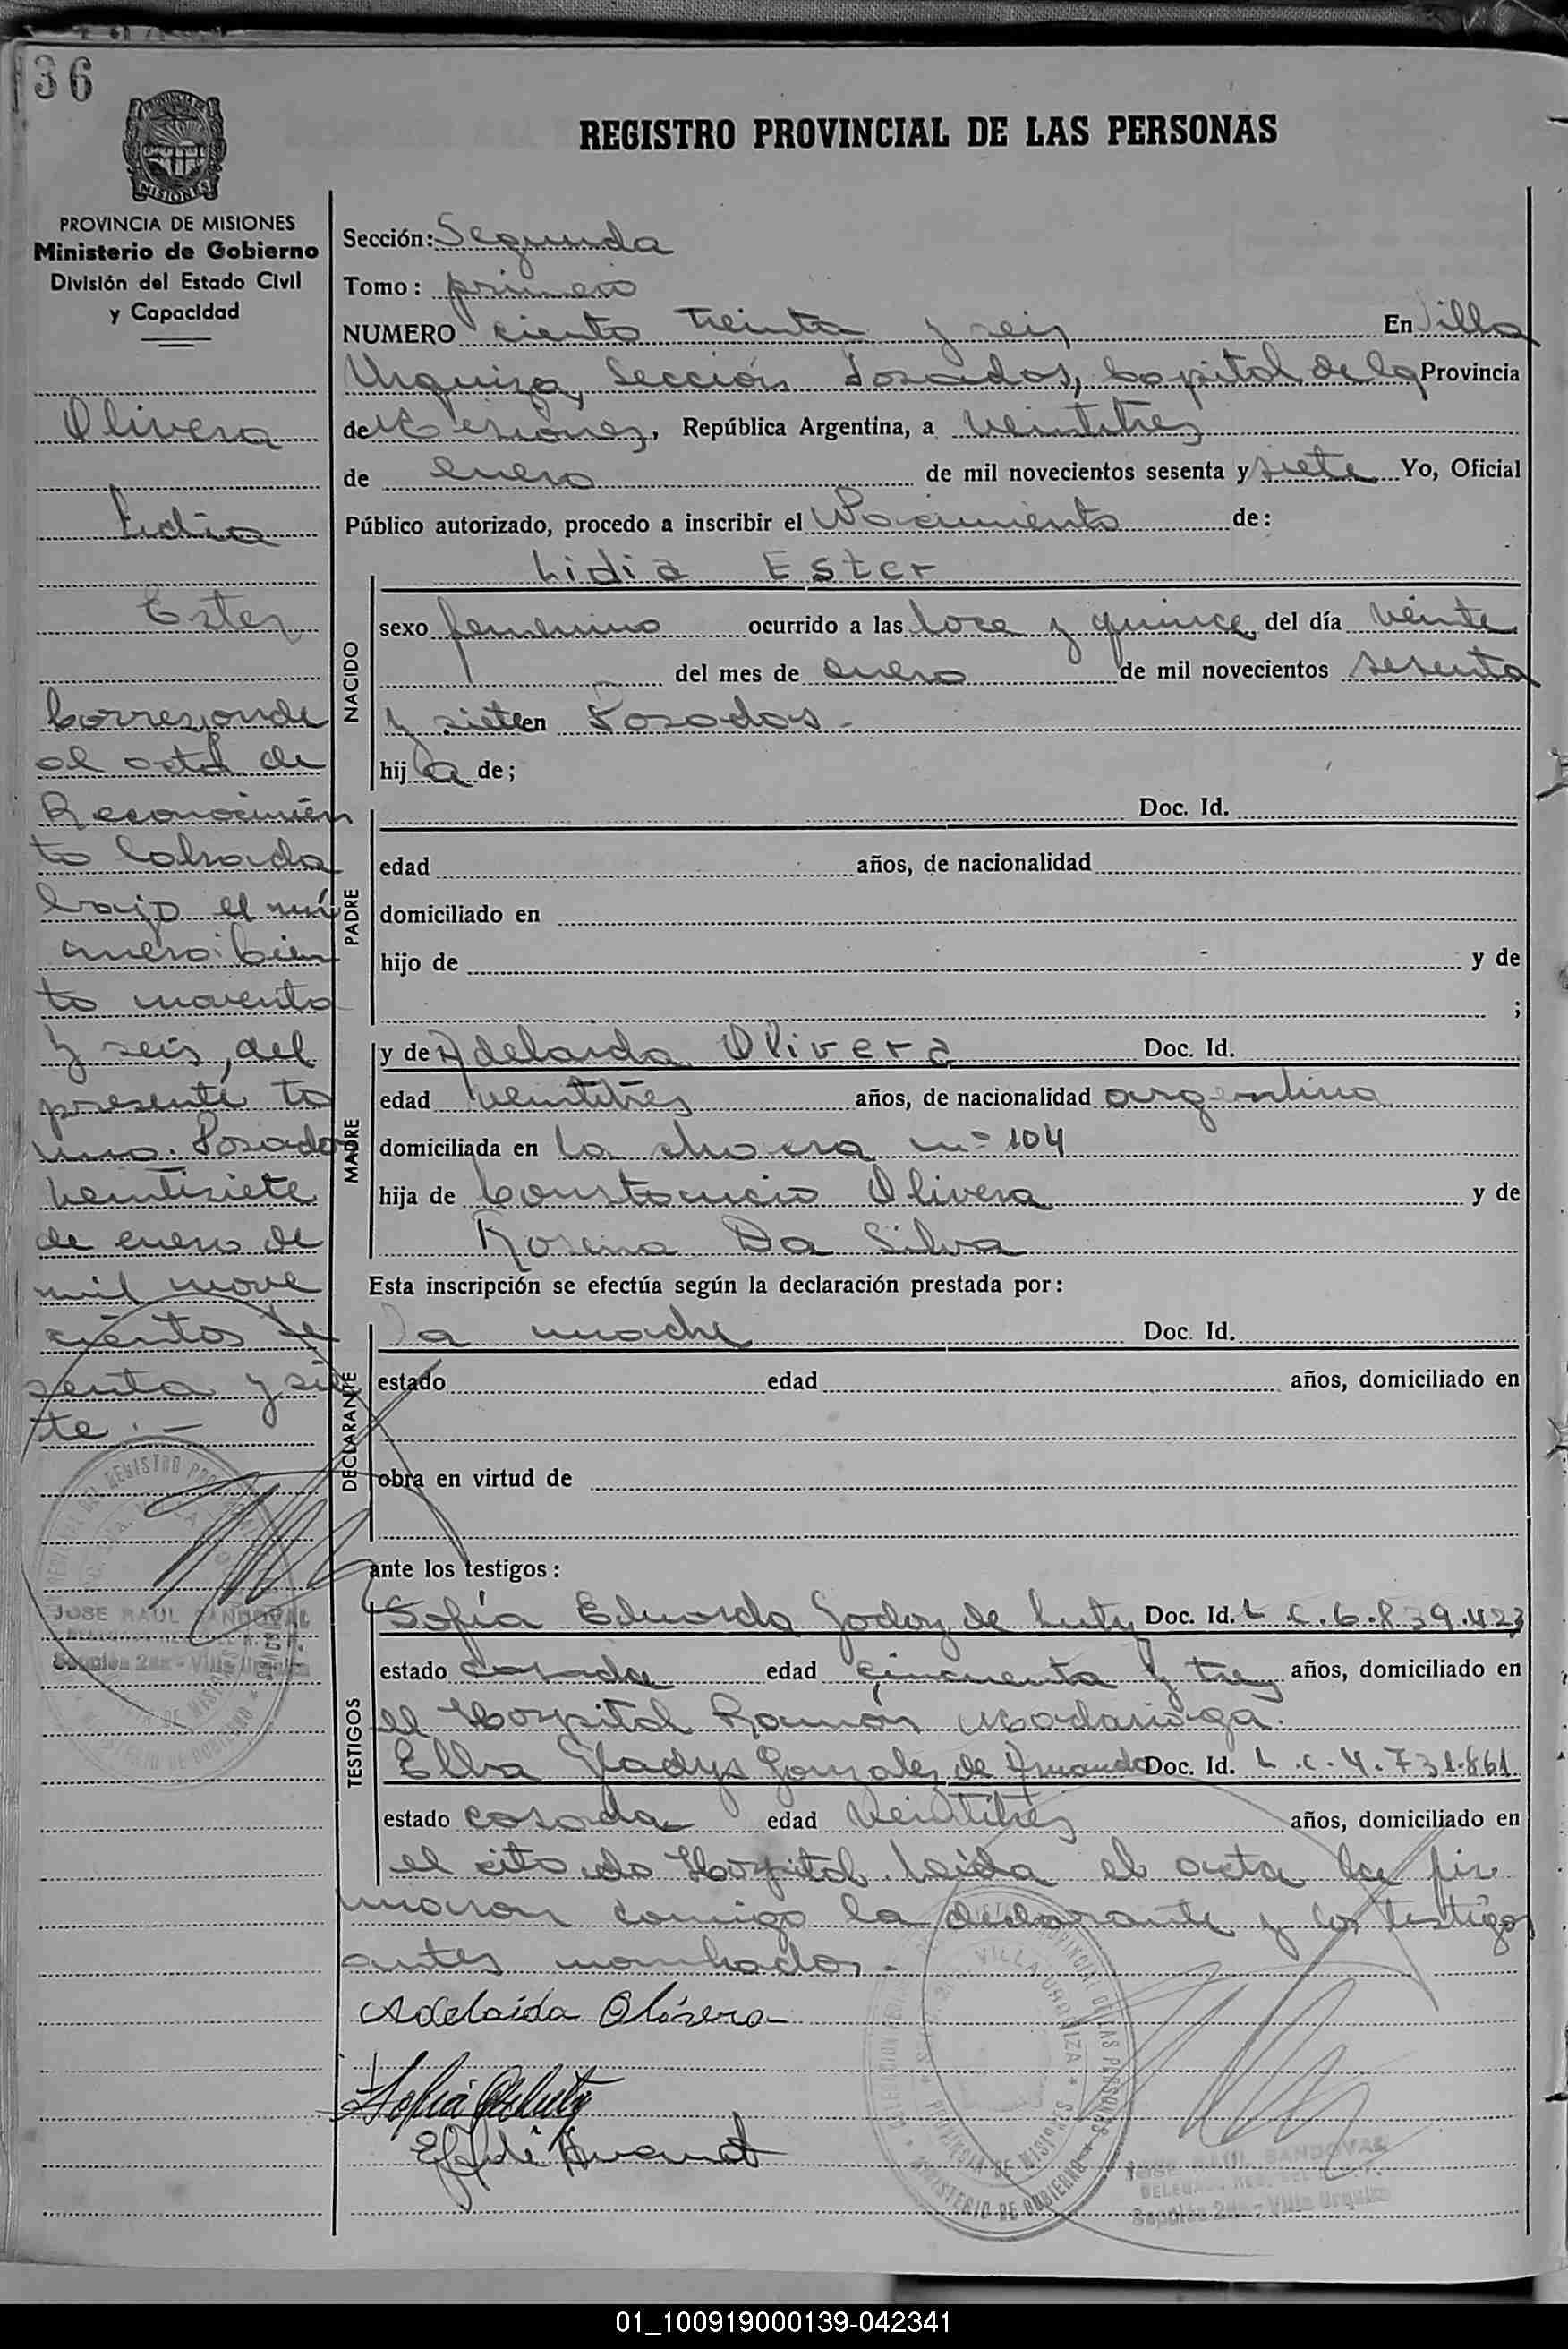 136
REGISTRO PROVINCIAL DE LAS PERSONAS
MISIONES
PROVINCIA DE MISIONES
Ministerio de Gobierno
División del Estado Civil
y Capacidad
Olivera
Lidia
Ester
Corresponde
al acta de
Reconocimien
to labrada
bajo el nú
mero: cien
to noventa
y seis, del
presente to
mo. Posadas
veintisiete
de enero de
mil nove
cientos se
senta y sie
te.-
JOSE RAUL SANDOVAL
Sección 2da - Villa Urquiza
Sección: Segunda
Tomo: primero
NUMERO ciento treinta y seis En Villa
Urquiza, Sección Posadas, Capital de la Provincia
de Misiones, República Argentina, a veintitres
de enero de mil novecientos sesenta y siete Yo, Oficial
Público autorizado, procedo a inscribir el Nacimiento de:
NACIDO
Lidia Ester
sexo femenino ocurrido a las doce y quince del día veinte
del mes de enero de mil novecientos sesenta
y siete en Posadas.-
hija de;
PADRE
Doc. Id.
edad años, de nacionalidad
domiciliado en
hijo de y de
;
MADRE
y de Adelaida Olivera Doc. Id.
edad veintitres años, de nacionalidad argentina
domiciliada en La nº 104
hija de Constancio Olivera y de
Rosena Da Silva
Esta inscripción se efectúa según la declaración prestada por:
DECLARANTE
la madre Doc. Id.
estado edad años, domiciliado en
obra en virtud de
ante los testigos:
TESTIGOS
Sofía Eduarda Godoy de Luty Doc. Id. L.C.6.839.423
estado casada edad cincuenta y tres años, domiciliado en
el Hospital Ramón Madariaga.
Elba Gladys Gonzalez de Amando Doc. Id. L.C.4.731.861
estado casada edad veintitres años, domiciliado en
el citado Hospital. Leída el acta la fir
maron conmigo la declarante y los testigos
antes nombrados.-
Adelaida Olivera
VILLA URQUIZA
PROVINCIA DE MISIONES
MINISTERIO DE GOBIERNO
JOSE RAUL SANDOVAL
Sección 2da - Villa Urquiza
01_100919000139-042341